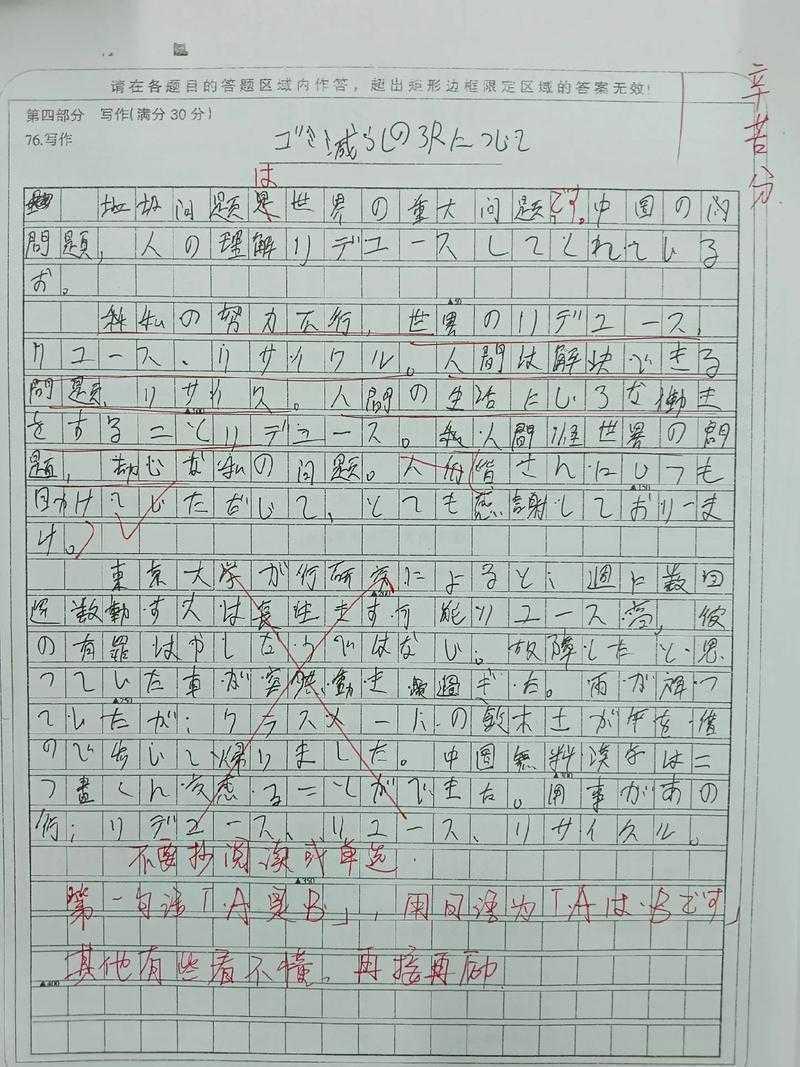 请在各题目的答题区域内作答，超出矩形边框限定区域的答案无效!
辛苦分
第四部分 写作(满分30分)
76.写作
ゴミ減らしの3Rについて
は
问題 世界の重大问題です。中国の
問題，人の理解リデュースしてくれている
お。
私の努力不行，世界のリデュース，
リユース、リサイクル。人間は解决できる
問題、リサイク。人間の生活にいろな働き
をすることリデュース。私人間 世界の問
題， な私の问題。 皆さんにいつも
かけて とても感謝しておりま
す。
東京大学が行研究によると、週に数回
数動す人は長生きす可能リユース高，彼
の有罪はかしなりではない。故障したと思
っていた車が突然、動き過ぎた。雨が っ
ていたが；クラスメートの鈴木 が を借
ので出して帰りました。中国無料漢字は二
つ ることができた。用事があの
行；リデュース、リユース、リサイクル。
不要抄阅读或单选.
第一句话「A是B」，用日语为「AはBです」
其他有些看不懂。再接再励
▲50
▲100
▲150
▲200
▲250
▲300
▲350
▲400